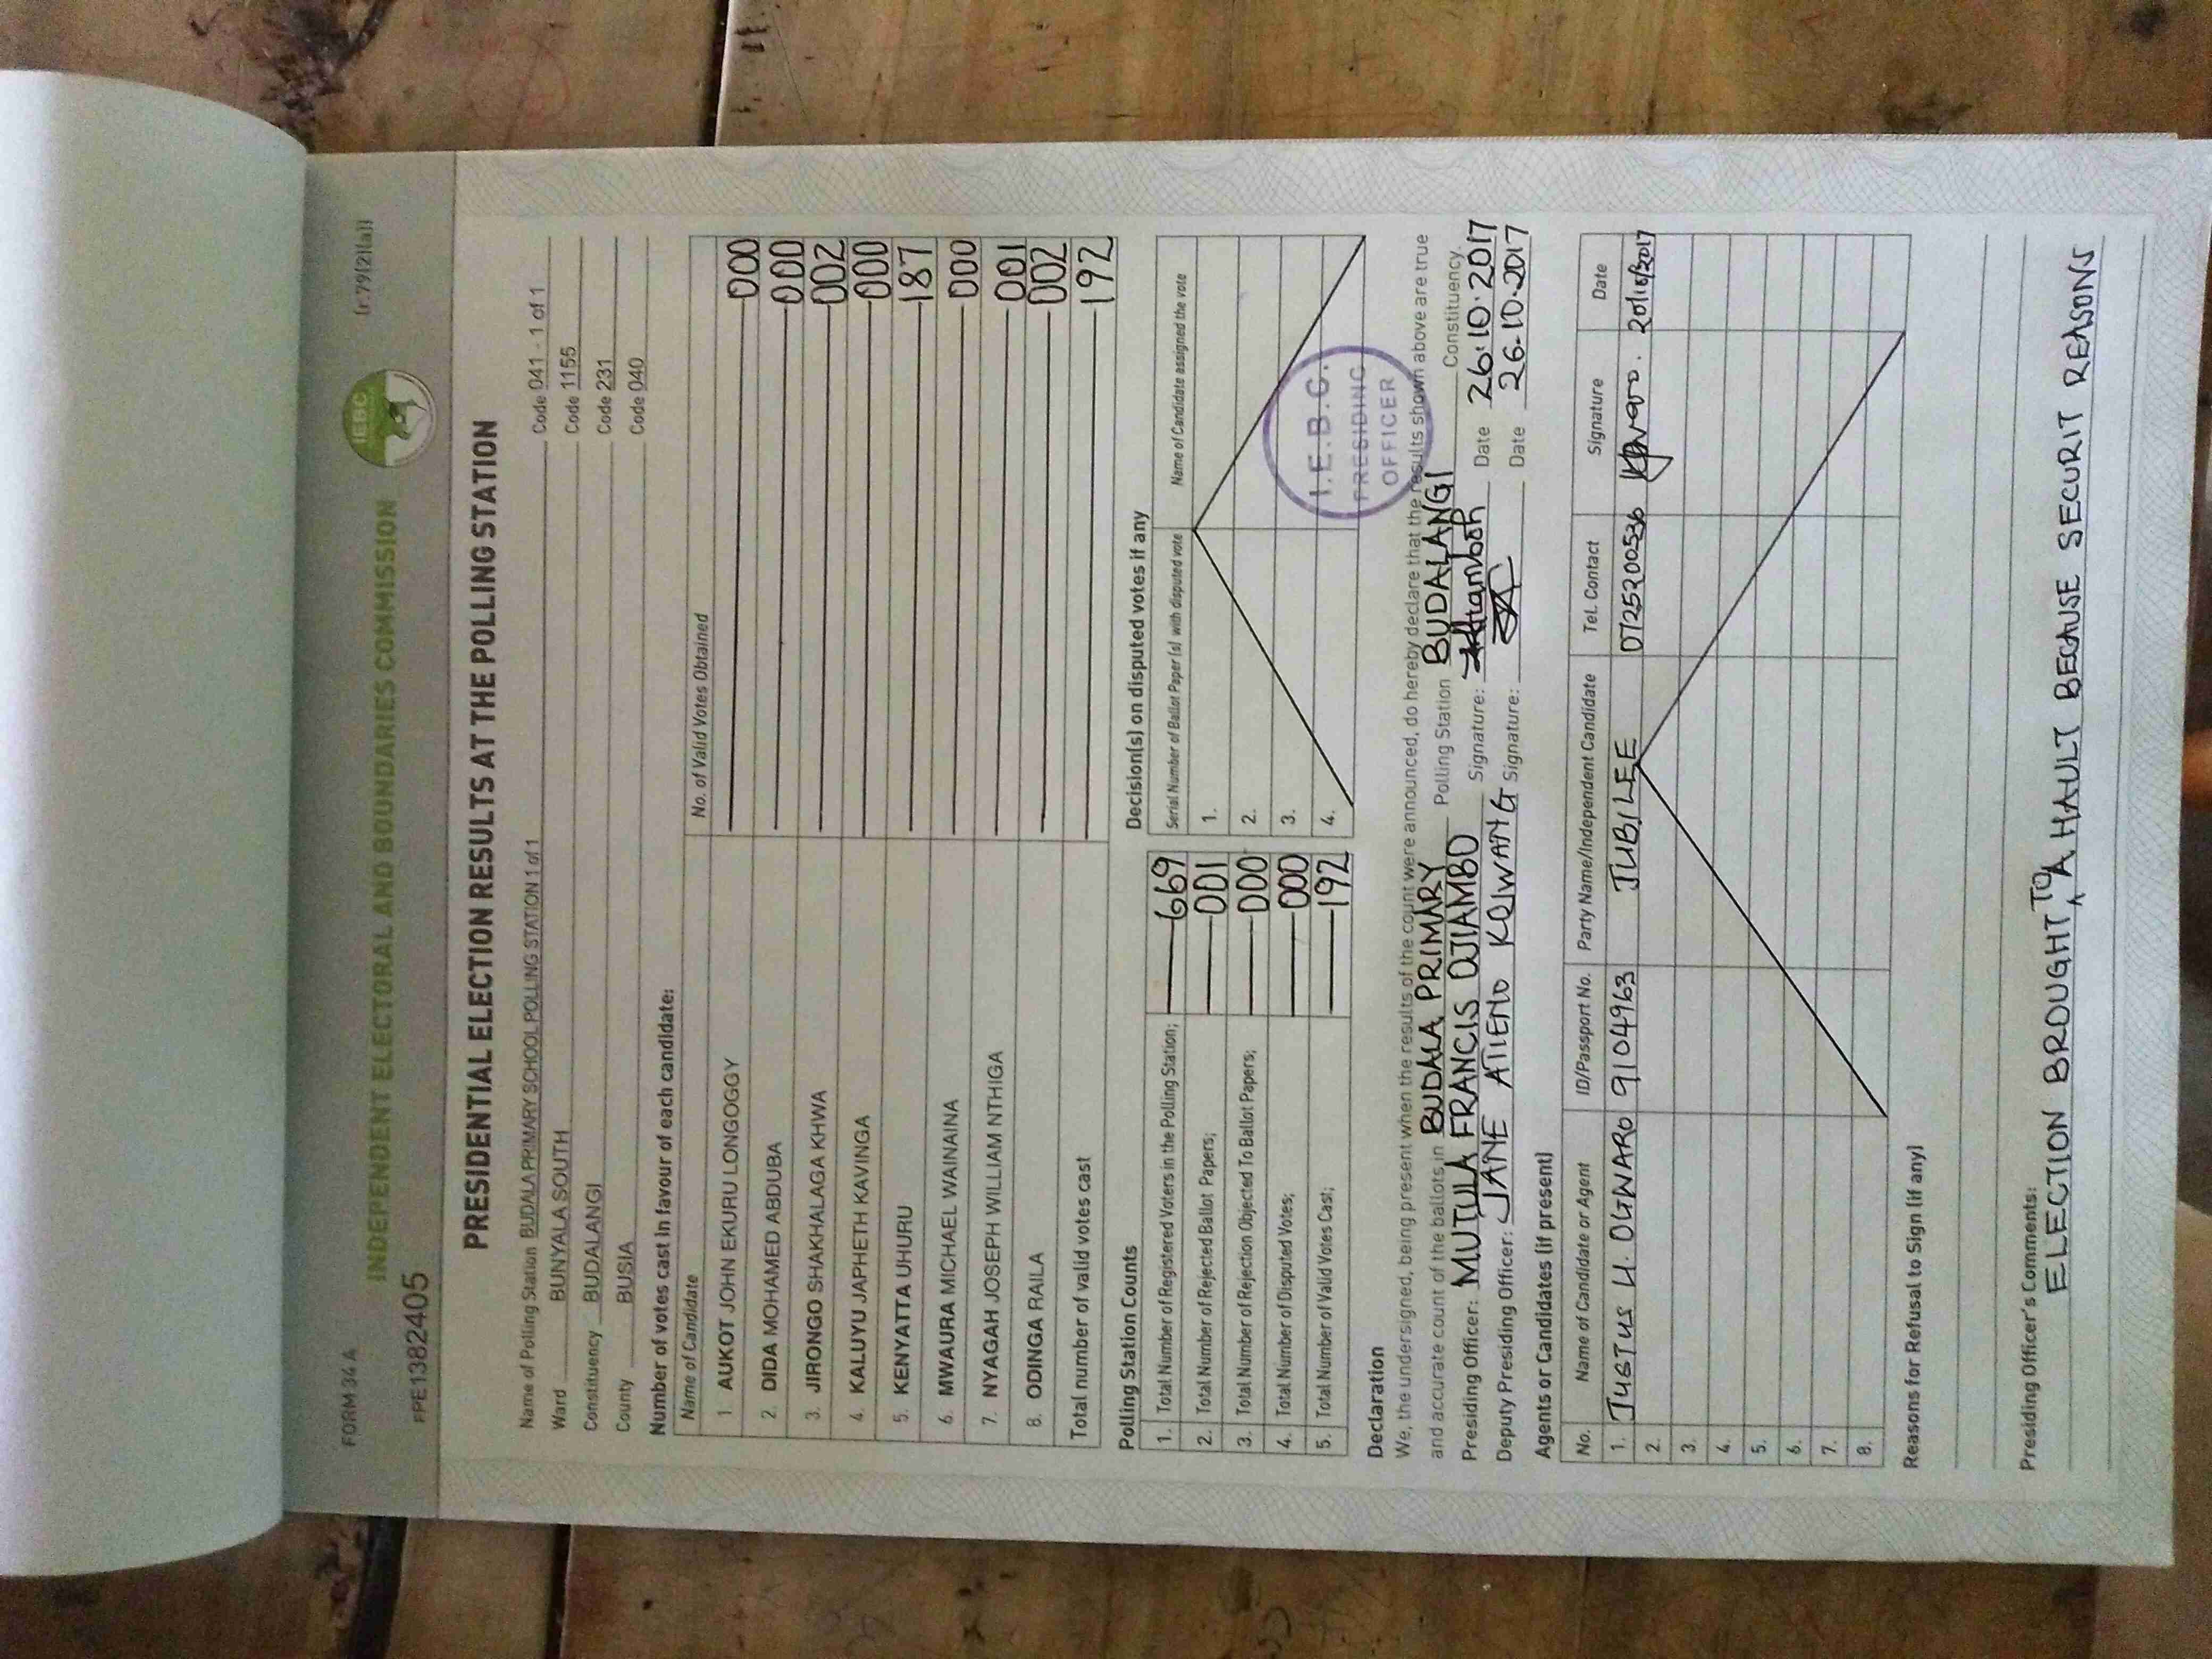 FORM 34 A
(r.79(2)(a))
IEBC
INDEPENDENT ELECTORAL AND BOUNDARIES COMMISSION
FPE1382405
PRESIDENTIAL ELECTION RESULTS AT THE POLLING STATION
Name of Polling Station BUDALA PRIMARY SCHOOL POLLING STATION 1 of 1 Code 041 - 1 of 1
Ward BUNYALA SOUTH Code 1155
Constituency BUDALANGI Code 231
County BUSIA Code 040
Number of votes cast in favour of each candidate:
Name of Candidate No. of Valid Votes Obtained
1 AUKOT JOHN EKURU LONGOGGY 000
2. DIDA MOHAMED ABDUBA 000
3. JIRONGO SHAKHALAGA KHWA 002
4. KALUYU JAPHETH KAVINGA 000
5. KENYATTA UHURU 187
6. MWAURA MICHAEL WAINAINA 000
7. NYAGAH JOSEPH WILLIAM NTHIGA 001
8. ODINGA RAILA 002
Total number of valid votes cast 192
Polling Station Counts
1. Total Number of Registered Voters in the Polling Station; 669
2. Total Number of Rejected Ballot Papers; 001
3. Total Number of Rejection Objected To Ballot Papers; 000
4. Total Number of Disputed Votes; 000
5. Total Number of Valid Votes Cast; 192
Decision(s) on disputed votes if any
Serial Number of Ballot Paper (s) with disputed vote Name of Candidate assigned the vote
1.
2.
3.
4.
I.E.B.C.
PRESIDING
OFFICER
Declaration
We, the undersigned, being present when the results of the count were announced, do hereby declare that the results shown above are true
and accurate count of the ballots in BUDALA PRIMARY Polling Station BUDALANGI Constituency.
Presiding Officer: MUTULA FRANCIS OJIAMBO Signature: Date 26.10.2017
Deputy Presiding Officer: JANE ATIENO Signature: Date 26.10.2017
Agents or Candidates (if present)
No. Name of Candidate or Agent ID/Passport No. Party Name/Independent Candidate Tel. Contact Signature Date
1. JUSTUS H. OGWARO 9104963 JUBILEE 0725200536
2.
3.
4.
5.
6.
7.
8.
Reasons for Refusal to Sign (if any)
Presiding Officer's Comments:
ELECTION BROUGHT TO A HAULT BECAUSE SECURIT REASONS